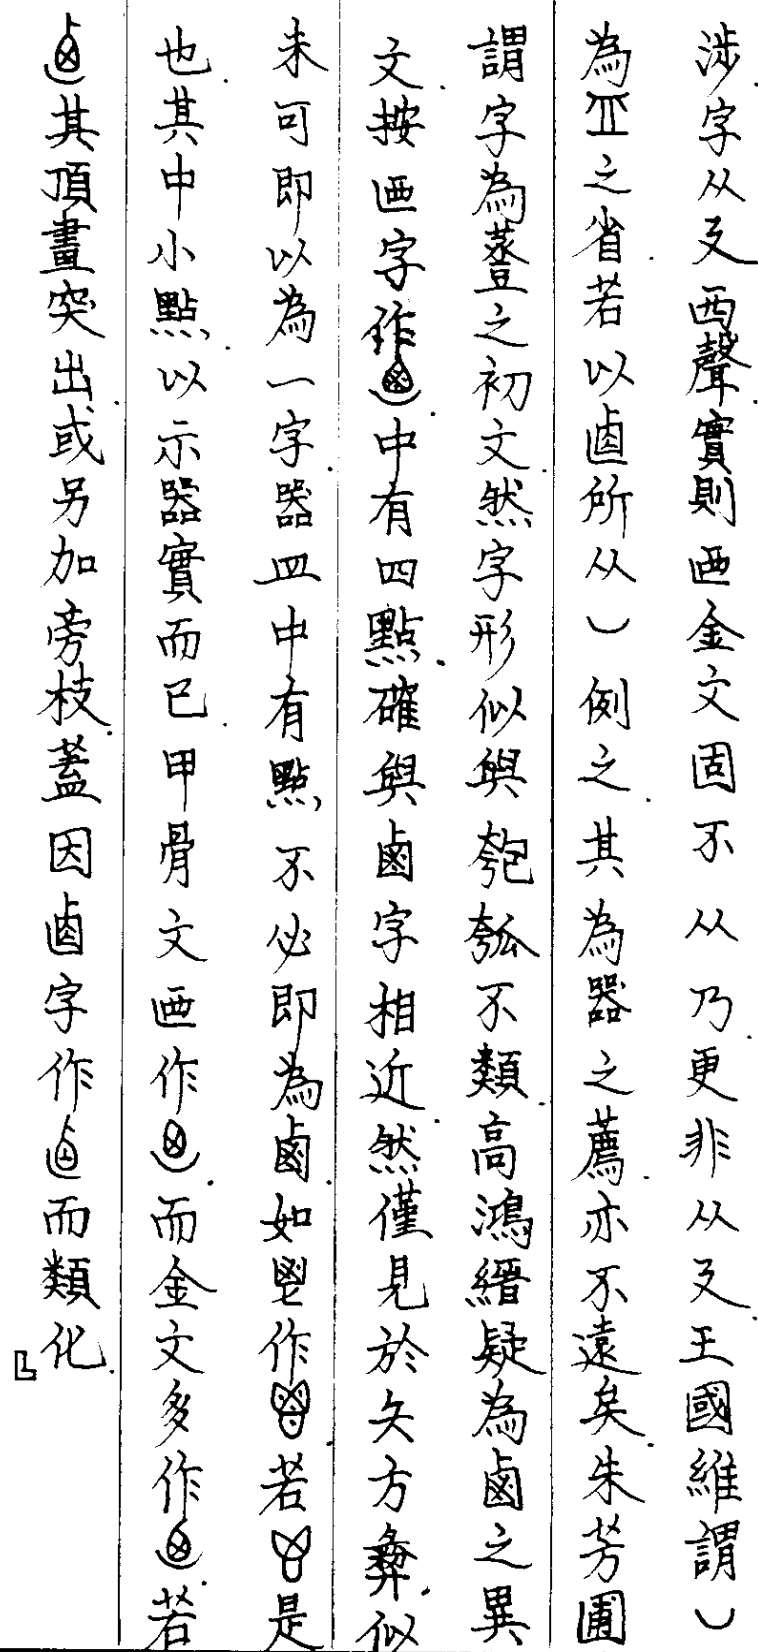 涉字从廴西聲實則逎金文固不从乃更非从廴王國維謂
為之省若以卣所从）例之其為器之薦亦不遠矣朱芳圃
謂字為荳之初文然字形似與匏瓠不類高鴻縉疑為鹵之異
文按逎字作中有四點確與鹵字相近然僅見於矢方彝似
未可即以為一字器皿中有點不必即為鹵如鬯作若是
也其中小點以示器實而已甲骨文逎作而金文多作若
其頂畫突出或另加旁枝蓋因卣字作而類化』